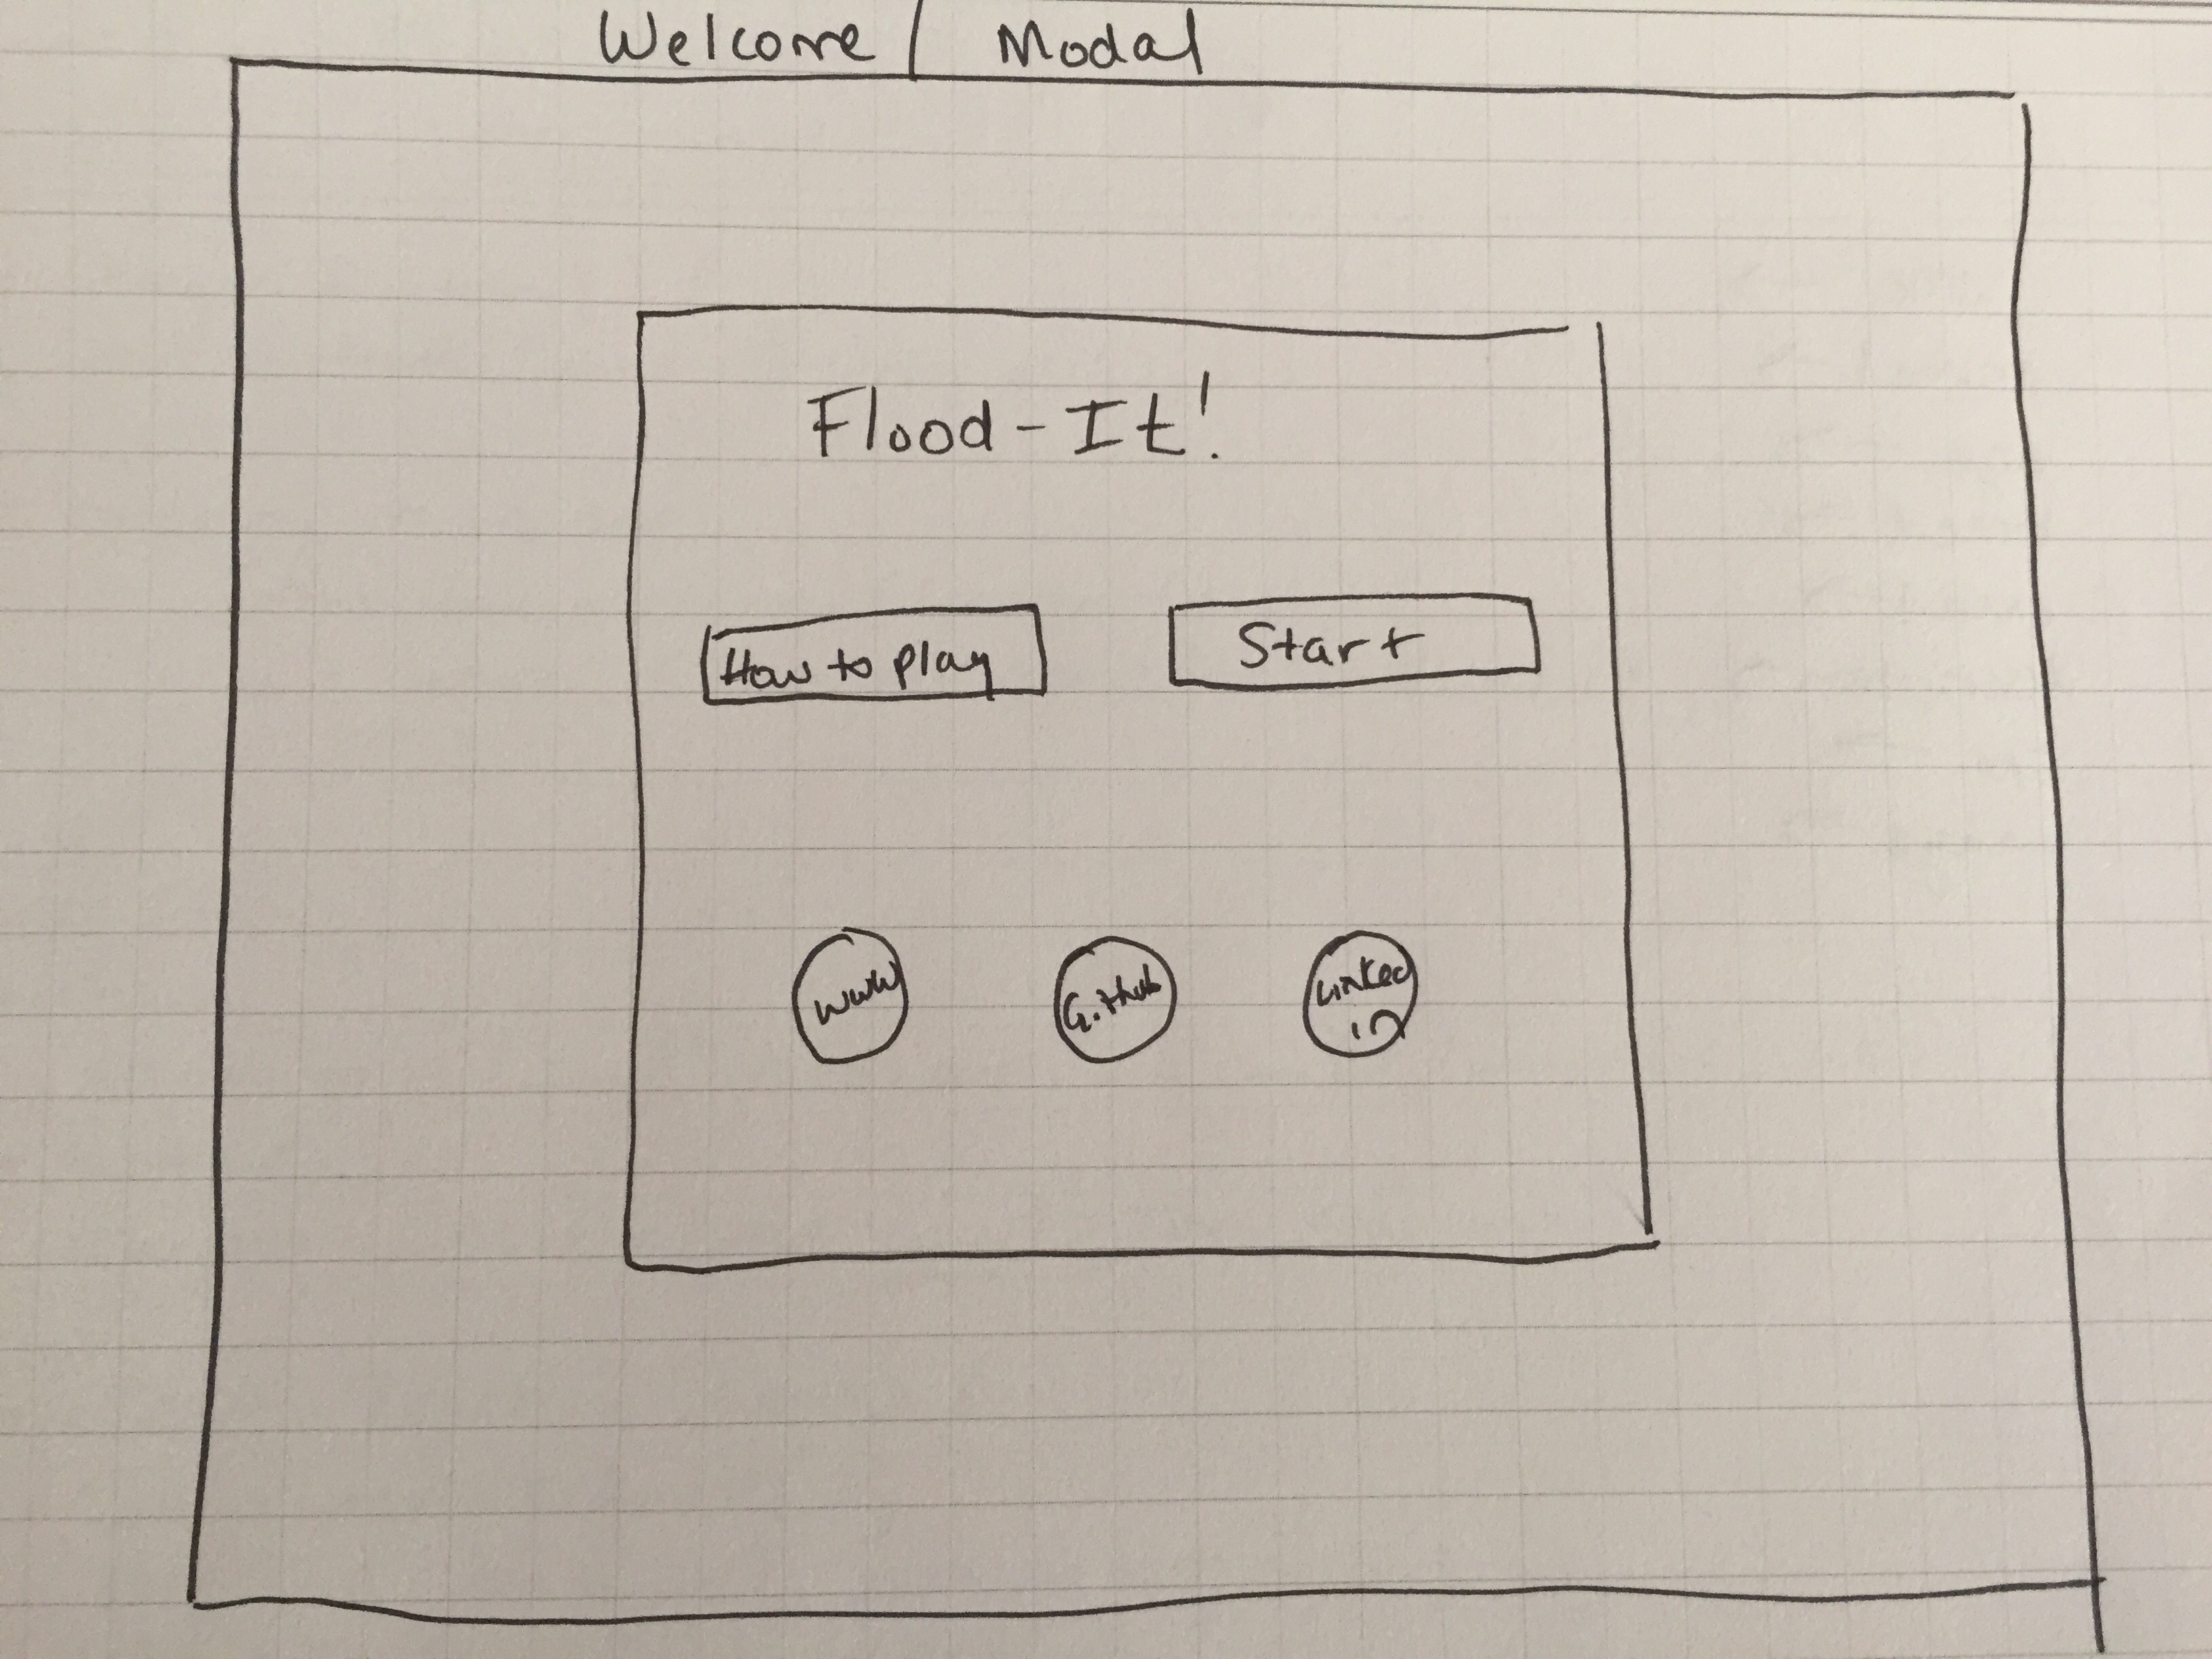 Welcome / Modal
Flood-It!
How to play
Start
www
GitHub
Linked
in